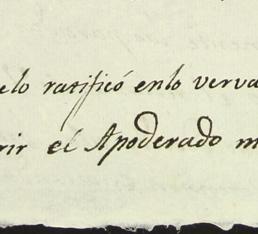 elo ratificó enlo verva
rir el Apoderado m